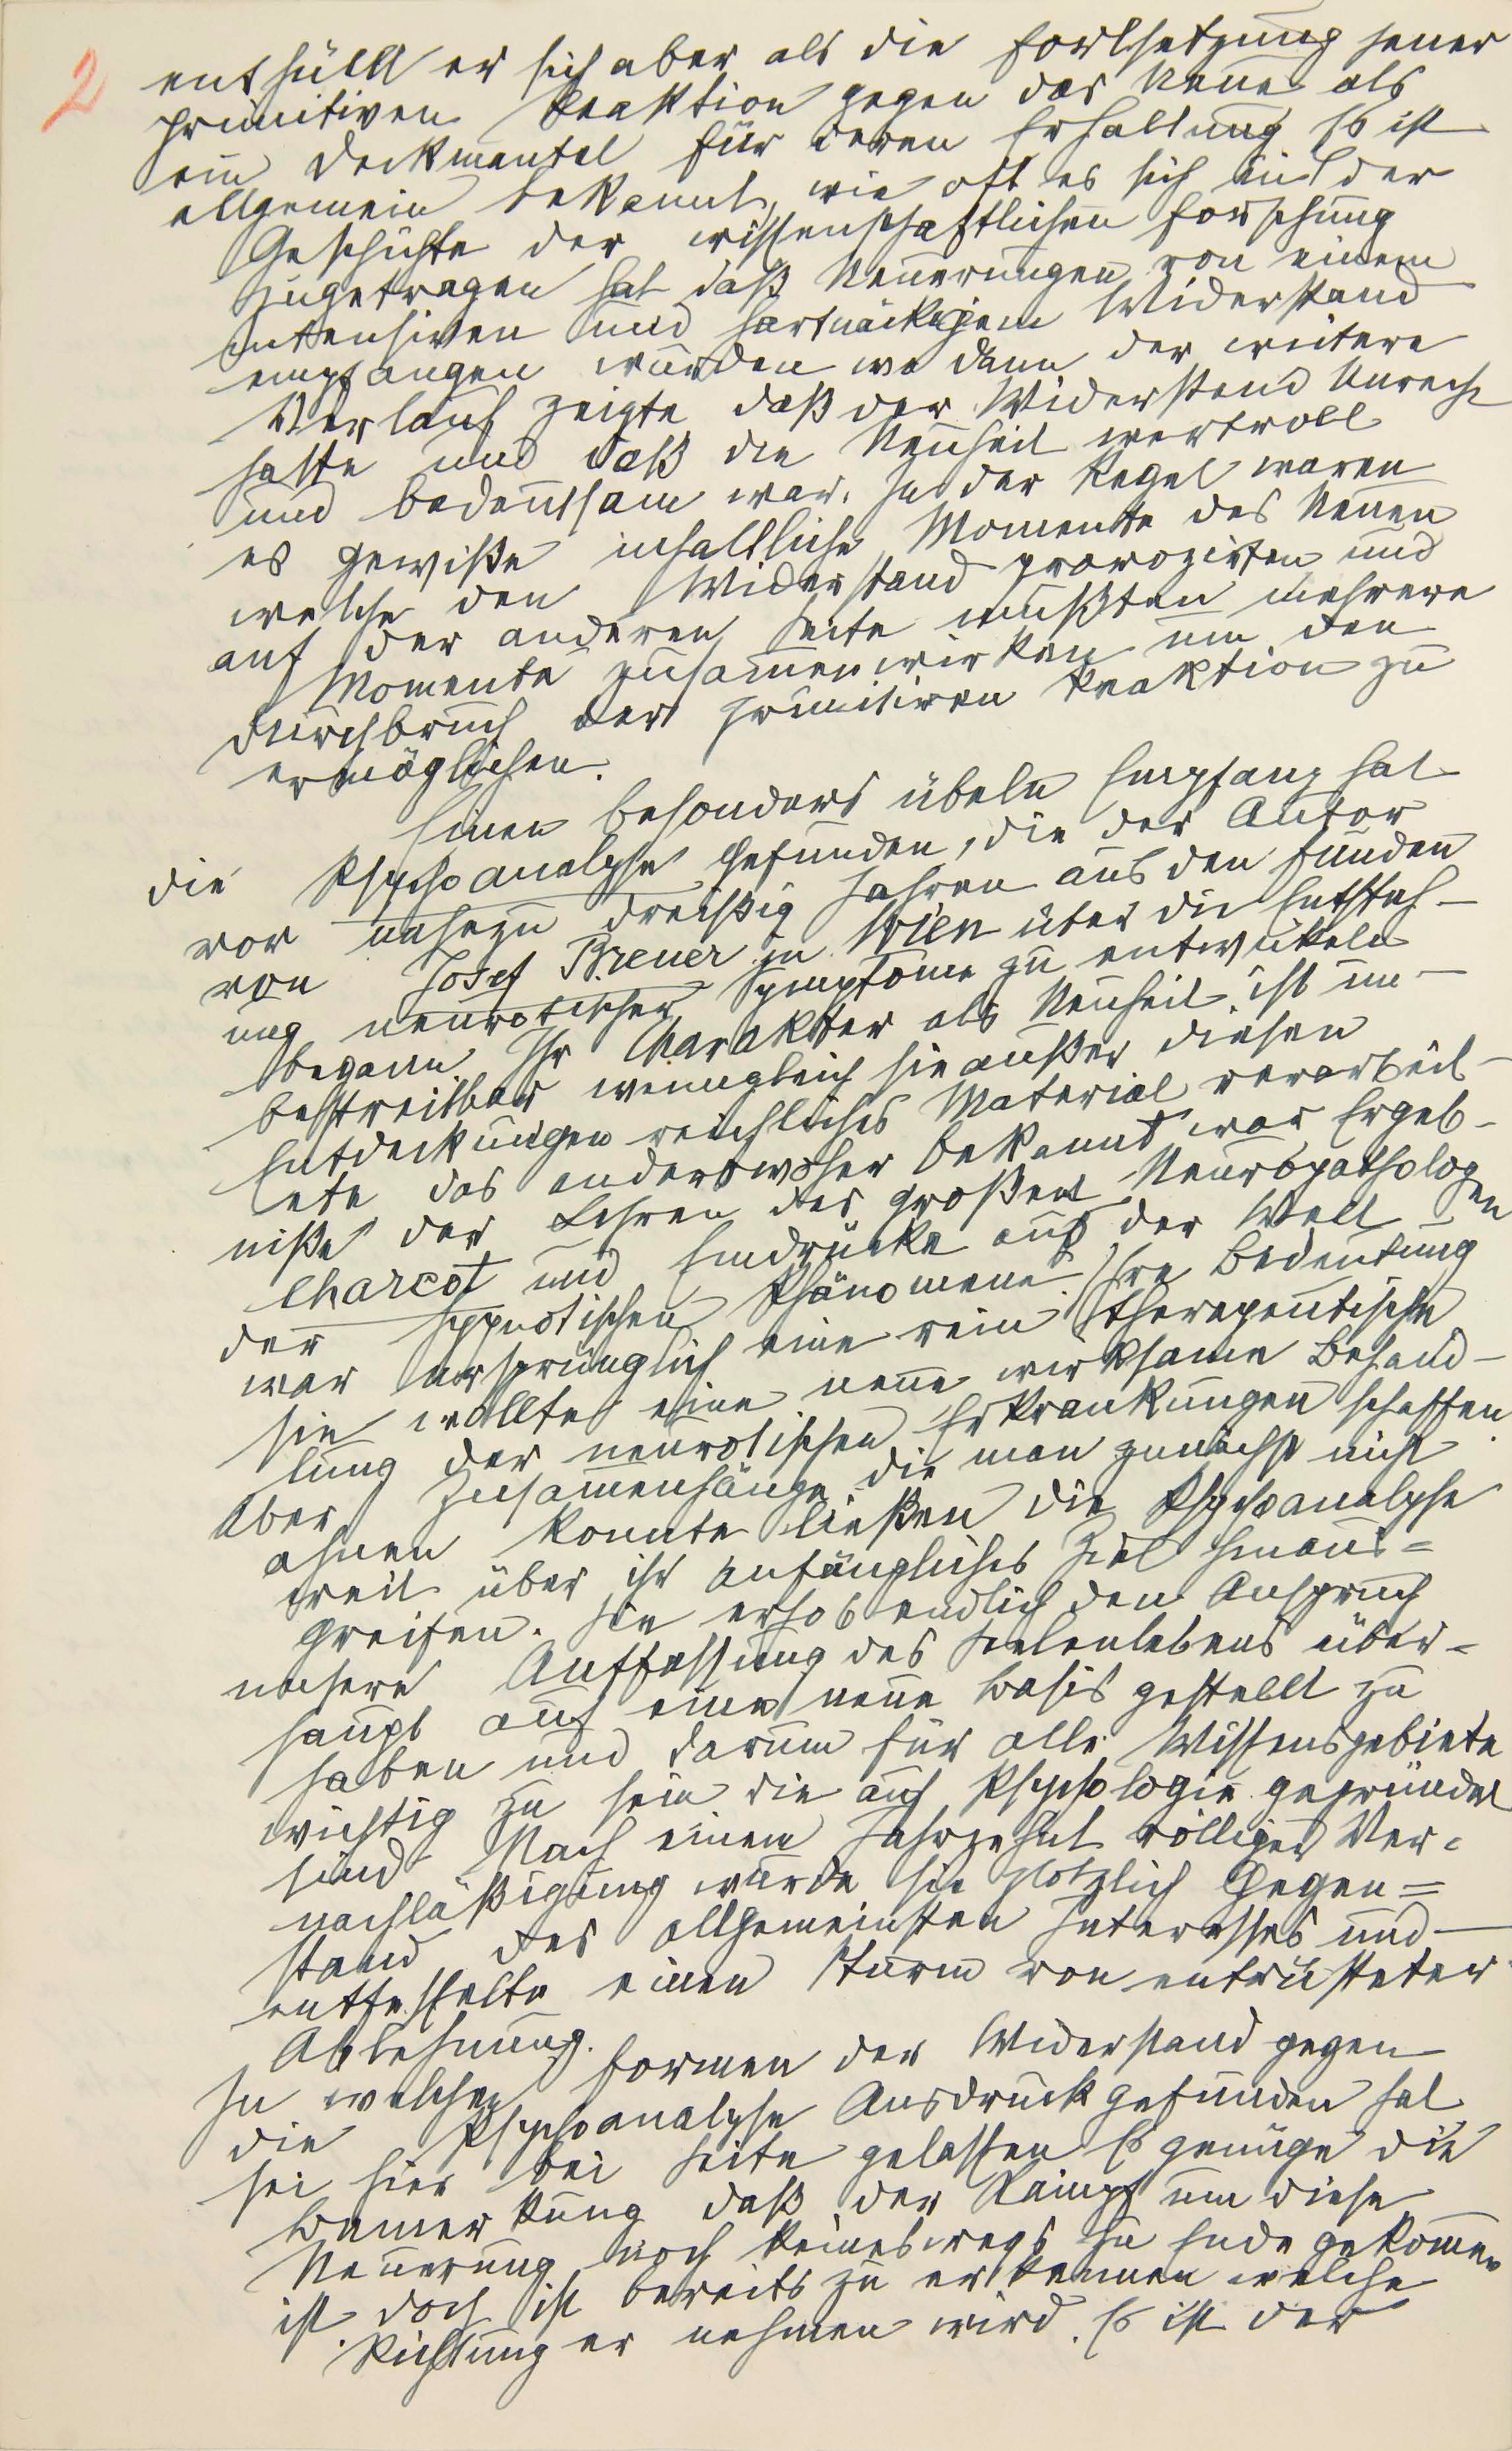 2
enthüllt er sich aber als die Fortsetzung jener
primitiven Reaktion gegen das Neue als
ein Deckmantel für deren Erhaltung Es ist
allgemein bekannt, wie oft es sich in der
Geschichte der wissenschaftlichen Forschung
zugetragen hat daß Neuerungen von einem
intensiven und hartnäckigem Widerstand
empfangen wurden wo dann der weitere
Verlauf zeigte daß der Widerstand Unrecht
hatte und daß die Neuheit wertvoll
und bedeutsam war. In der Regel waren
es gewiße inhaltliche Momente des Neuen
welche den Widerstand provozirten und
auf der anderen Seite mußten mehrere
Momente zusam̅enwirken um den
Durchbruch der primitiven Reaktion zu
ermöglichen.
Einen besonders übeln Empfang hat
die Psychoanalyse gefunden, die der Autor
vor nahezu dreißig Jahren aus den Funden
von Josef Breuer in Wien über die Entsteh-
ung neurotischer Symptome zu entwickeln
begann Ihr Charakter als Neuheit ist un-
bestreitbar wenngleich sie außer diesen
Entdeckungen reichliches Material verarbeit-
ete das anderswoher bekannt war Ergeb-
niße der Lehren des großen Neuropathologen
Charcot und Eindrücke aus der Welt
der hypnotischen Phänomene. Ihre Bedeutung
war ursprünglich eine rein therapeutische
sie wollte eine neue wirksame Behand-
lung der neurotischen Erkrankungen schaffen.
Aber Zusam̅enhänge die man zunächst nicht
ahnen konnte ließen die Psychoanalyse
weit über ihr anfängliches Ziel hinaus=
greifen. Sie erhob endlich den Anspruch
unsere Auffassung des Seelenlebens über=
haupt auf eine neue Basis gestellt zu
haben und darum für alle Wissensgebiete
wichtig zu sein die auf Psychologie gegründet
sind Nach einem Jahrzehnt völliger Ver=
nachläßigung wurde sie plötzlich Gegen=
stand des allgemeinsten Interesses und
entfesselte einen Sturm von entrüsteter
Ablehnung.
In welchen Formen der Widerstand gegen
die Psychoanalyse Ausdruck gefunden hat
sei hier bei Seite gelassen Es genüge die
Bemerkung daß der Kampf um diese
Neuerung noch keineswegs zu Ende gekom̅en
ist doch ist bereits zu erkennen welche
Richtung er nehmen wird. Es ist der